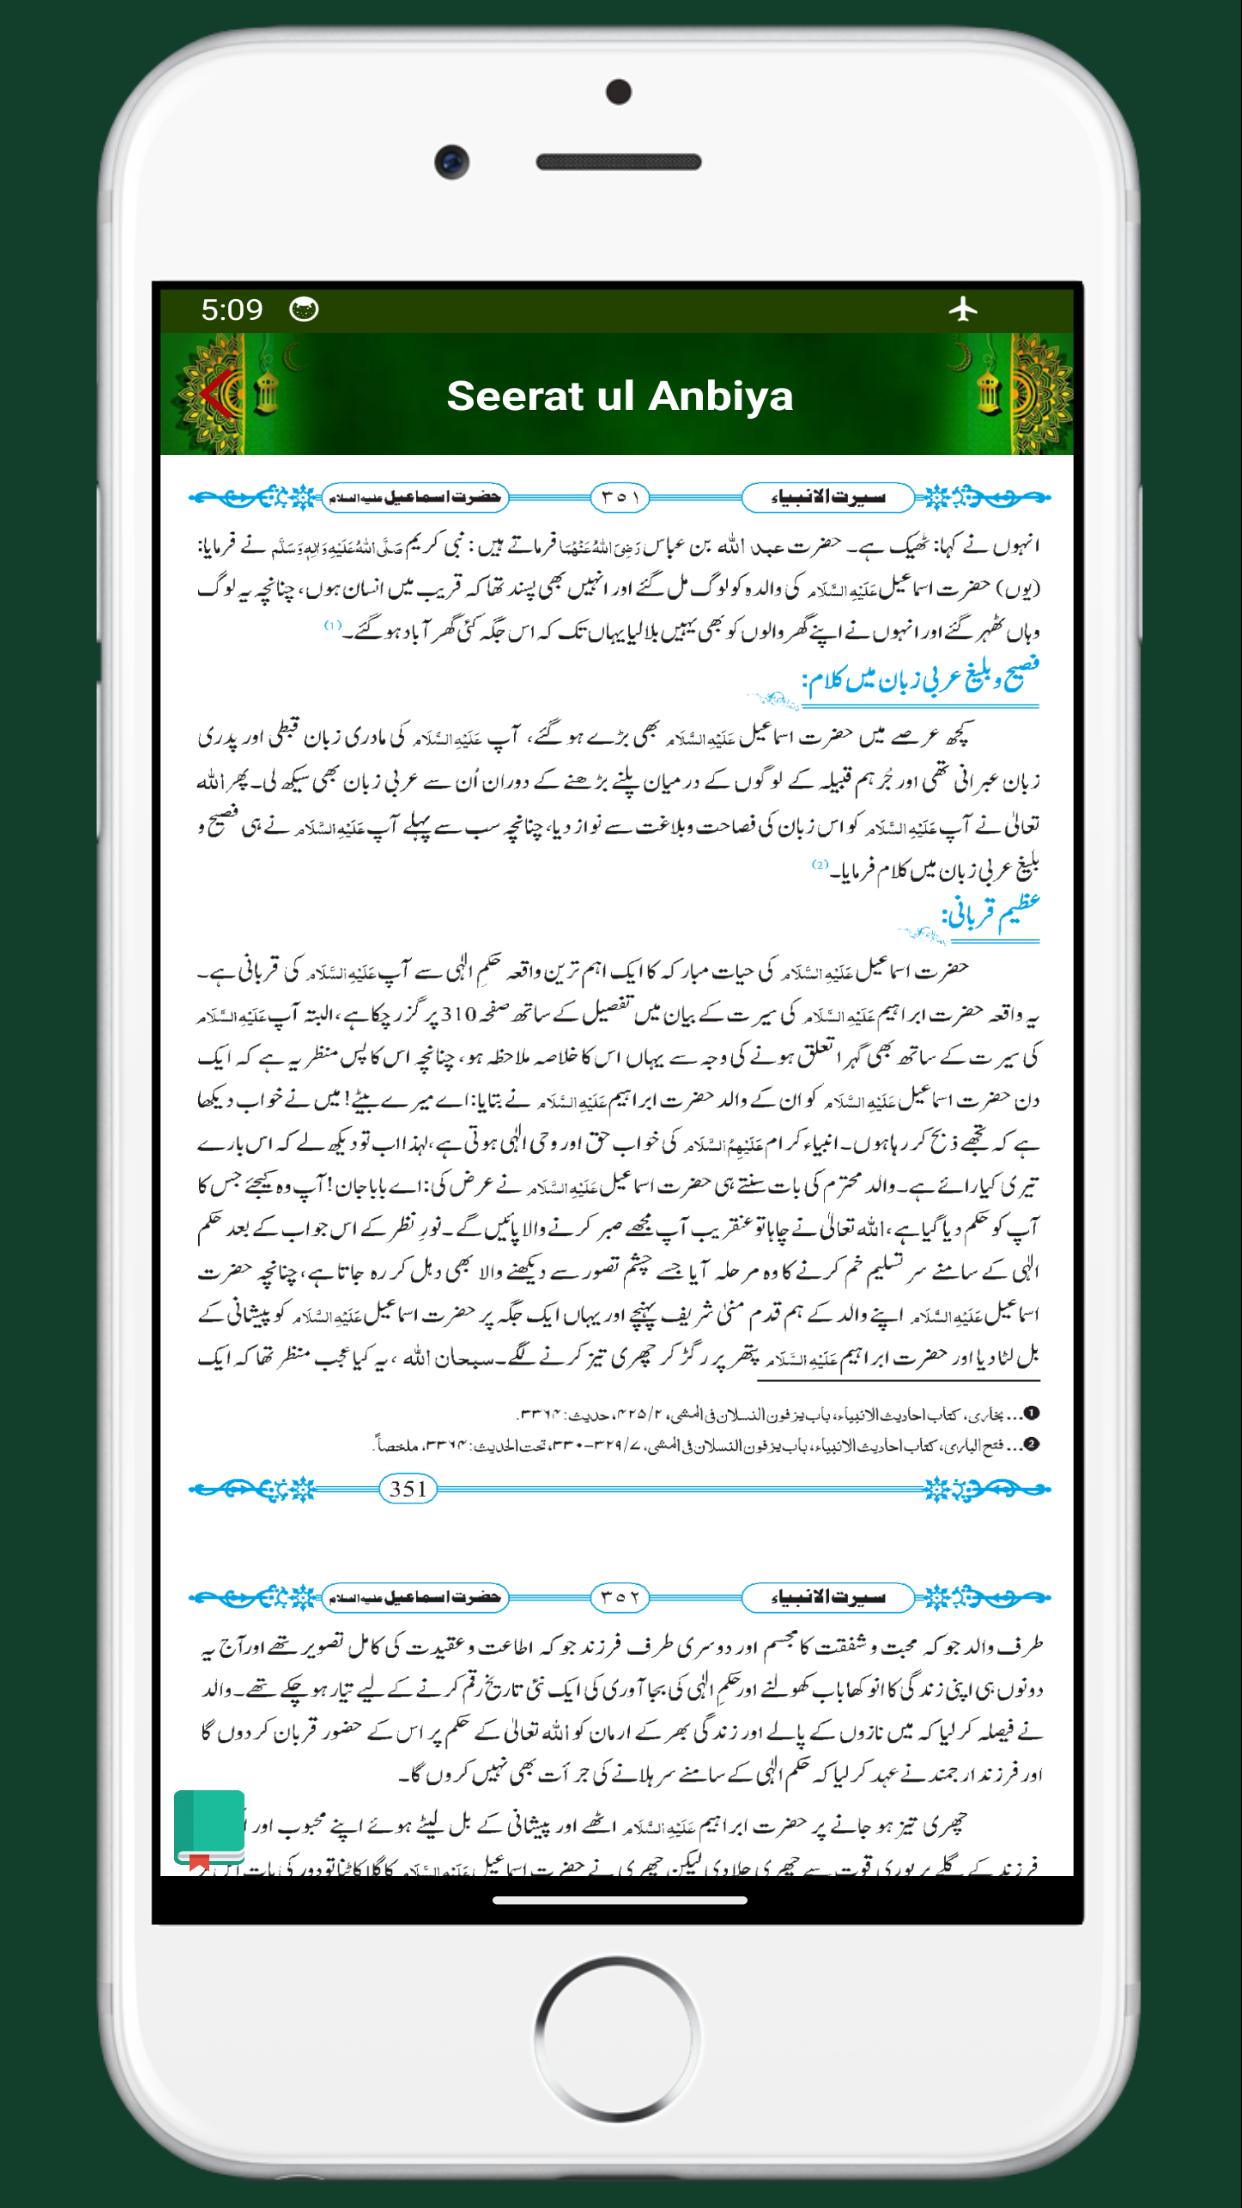 5:09
Seerat ul Anbiya
سیرت الانبیاء ۳۵۱ حضرت اسماعیل علیہ السلام
انہوں نے کہا: ٹھیک ہے۔ حضرت عبد اللہ بن عباس رَضِیَ اللہُ عَنْہُمَا فرماتے ہیں: نبی کریم صَلَّی اللہُ عَلَیْہِ وَاٰلِہٖ وَسَلَّم نے فرمایا:
(یوں) حضرت اسماعیل عَلَیْہِ السَّلَام کی والدہ کو لوگ مل گئے اور انہیں بھی پسند تھا کہ قریب میں انسان ہوں، چنانچہ یہ لوگ
وہاں ٹھہر گئے اور انہوں نے اپنے گھر والوں کو بھی یہیں بلا لیا یہاں تک کہ اس جگہ کئی گھر آباد ہو گئے۔(1)
فصیح و بلیغ عربی زبان میں کلام:
کچھ عرصے میں حضرت اسماعیل عَلَیْہِ السَّلَام بھی بڑے ہو گئے، آپ عَلَیْہِ السَّلَام کی مادری زبان قبطی اور پدری
زبان عبرانی تھی اور جُرہم قبیلہ کے لوگوں کے درمیان پلنے بڑھنے کے دوران اُن سے عربی زبان بھی سیکھ لی۔ پھر اللہ
تعالیٰ نے آپ عَلَیْہِ السَّلَام کو اس زبان کی فصاحت و بلاغت سے نواز دیا، چنانچہ سب سے پہلے آپ عَلَیْہِ السَّلَام نے ہی فصیح و
بلیغ عربی زبان میں کلام فرمایا۔(2)
عظیم قربانی:
حضرت اسماعیل عَلَیْہِ السَّلَام کی حیات مبارکہ کا ایک اہم ترین واقعہ حکمِ الٰہی سے آپ عَلَیْہِ السَّلَام کی قربانی ہے۔
یہ واقعہ حضرت ابراہیم عَلَیْہِ السَّلَام کی سیرت کے بیان میں تفصیل کے ساتھ صفحہ 310 پر گزر چکا ہے، البتہ آپ عَلَیْہِ السَّلَام
کی سیرت کے ساتھ بھی گہرا تعلق ہونے کی وجہ سے یہاں اس کا خلاصہ ملاحظہ ہو، چنانچہ اس کا پس منظر یہ ہے کہ ایک
دن حضرت اسماعیل عَلَیْہِ السَّلَام کو ان کے والد حضرت ابراہیم عَلَیْہِ السَّلَام نے بتایا: اے میرے بیٹے! میں نے خواب دیکھا
ہے کہ تجھے ذبح کر رہا ہوں۔ انبیاء کرام عَلَیْہِمُ السَّلَام کی خواب حق اور وحی الٰہی ہوتی ہے، لہٰذا اب تو دیکھ لے کہ اس بارے
تیری کیا رائے ہے۔ والد محترم کی بات سنتے ہی حضرت اسماعیل عَلَیْہِ السَّلَام نے عرض کی: اے بابا جان! آپ وہ کیجئے جس کا
آپ کو حکم دیا گیا ہے، اللہ تعالیٰ نے چاہا تو عنقریب آپ مجھے صبر کرنے والا پائیں گے۔ نورِ نظر کے اس جواب کے بعد حکم
الٰہی کے سامنے سر تسلیم خم کرنے کا وہ مرحلہ آیا جسے چشم تصور سے دیکھنے والا بھی دہل کر رہ جاتا ہے، چنانچہ حضرت
اسماعیل عَلَیْہِ السَّلَام اپنے والد کے ہم قدم منیٰ شریف پہنچے اور یہاں ایک جگہ پر حضرت اسماعیل عَلَیْہِ السَّلَام کو پیشانی کے
بل لٹا دیا اور حضرت ابراہیم عَلَیْہِ السَّلَام پتھر پر رگڑ کر چھری تیز کرنے لگے۔ سبحان اللہ، یہ کیا عجب منظر تھا کہ ایک
❶... بخاری، کتاب احادیث الانبیاء، باب یزفون النسلان فی المشی، ۲/۴۲۵، حدیث: ۳۳۶۴.
❷... فتح الباری، کتاب احادیث الانبیاء، باب یزفون النسلان فی المشی، ۷/۳۲۹-۳۳۰، تحت الحدیث: ۳۳۶۴، ملخصاً.
351
سیرت الانبیاء ۳۵۲ حضرت اسماعیل علیہ السلام
طرف والد جو کہ محبت و شفقت کا مجسم اور دوسری طرف فرزند جو کہ اطاعت و عقیدت کی کامل تصویر تھے اور آج یہ
دونوں ہی اپنی زندگی کا انوکھا باب کھولنے اور حکمِ الٰہی کی بجا آوری کی ایک نئی تاریخ رقم کرنے کے لیے تیار ہو چکے تھے۔ والد
نے فیصلہ کر لیا کہ میں نازوں کے پالے اور زندگی بھر کے ارمان کو اللہ تعالیٰ کے حکم پر اس کے حضور قربان کر دوں گا
اور فرزند ارجمند نے عہد کر لیا کہ حکم الٰہی کے سامنے سر ہلانے کی جرأت بھی نہیں کروں گا۔
چھری تیز ہو جانے پر حضرت ابراہیم عَلَیْہِ السَّلَام اٹھے اور پیشانی کے بل لیٹے ہوئے اپنے محبوب اور
فرزند کے گلے پر پوری قوت سے چھری چلا دی لیکن چھری نے حضرت اسماعیل عَلَیْہِ السَّلَام کا گلا کاٹنا تو دور کی بات اس